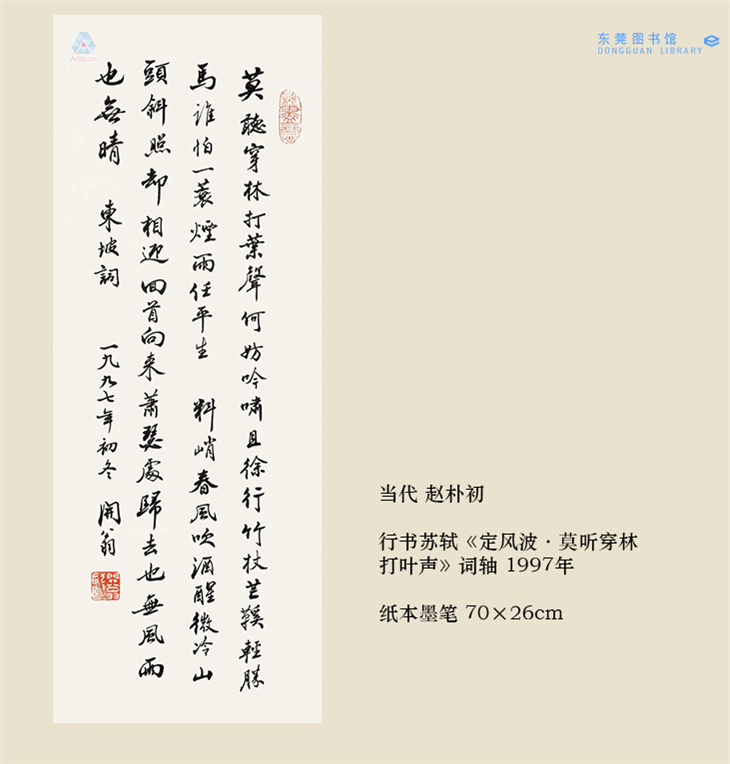 东莞图书馆
DONGGUAN LIBRARY
莫聽穿林打葉聲何妨吟嘯且徐行竹杖芒鞵輕勝
馬誰怕一蓑煙雨任平生 料峭春風吹酒醒微冷山
頭斜照却相迎回首向来蕭瑟處歸去也無風雨
也無晴 東坡詞 一九九七年初冬 開翁
当代 赵朴初
行书苏轼《定风波·莫听穿林
打叶声》词轴 1997年
纸本墨笔 70×26cm